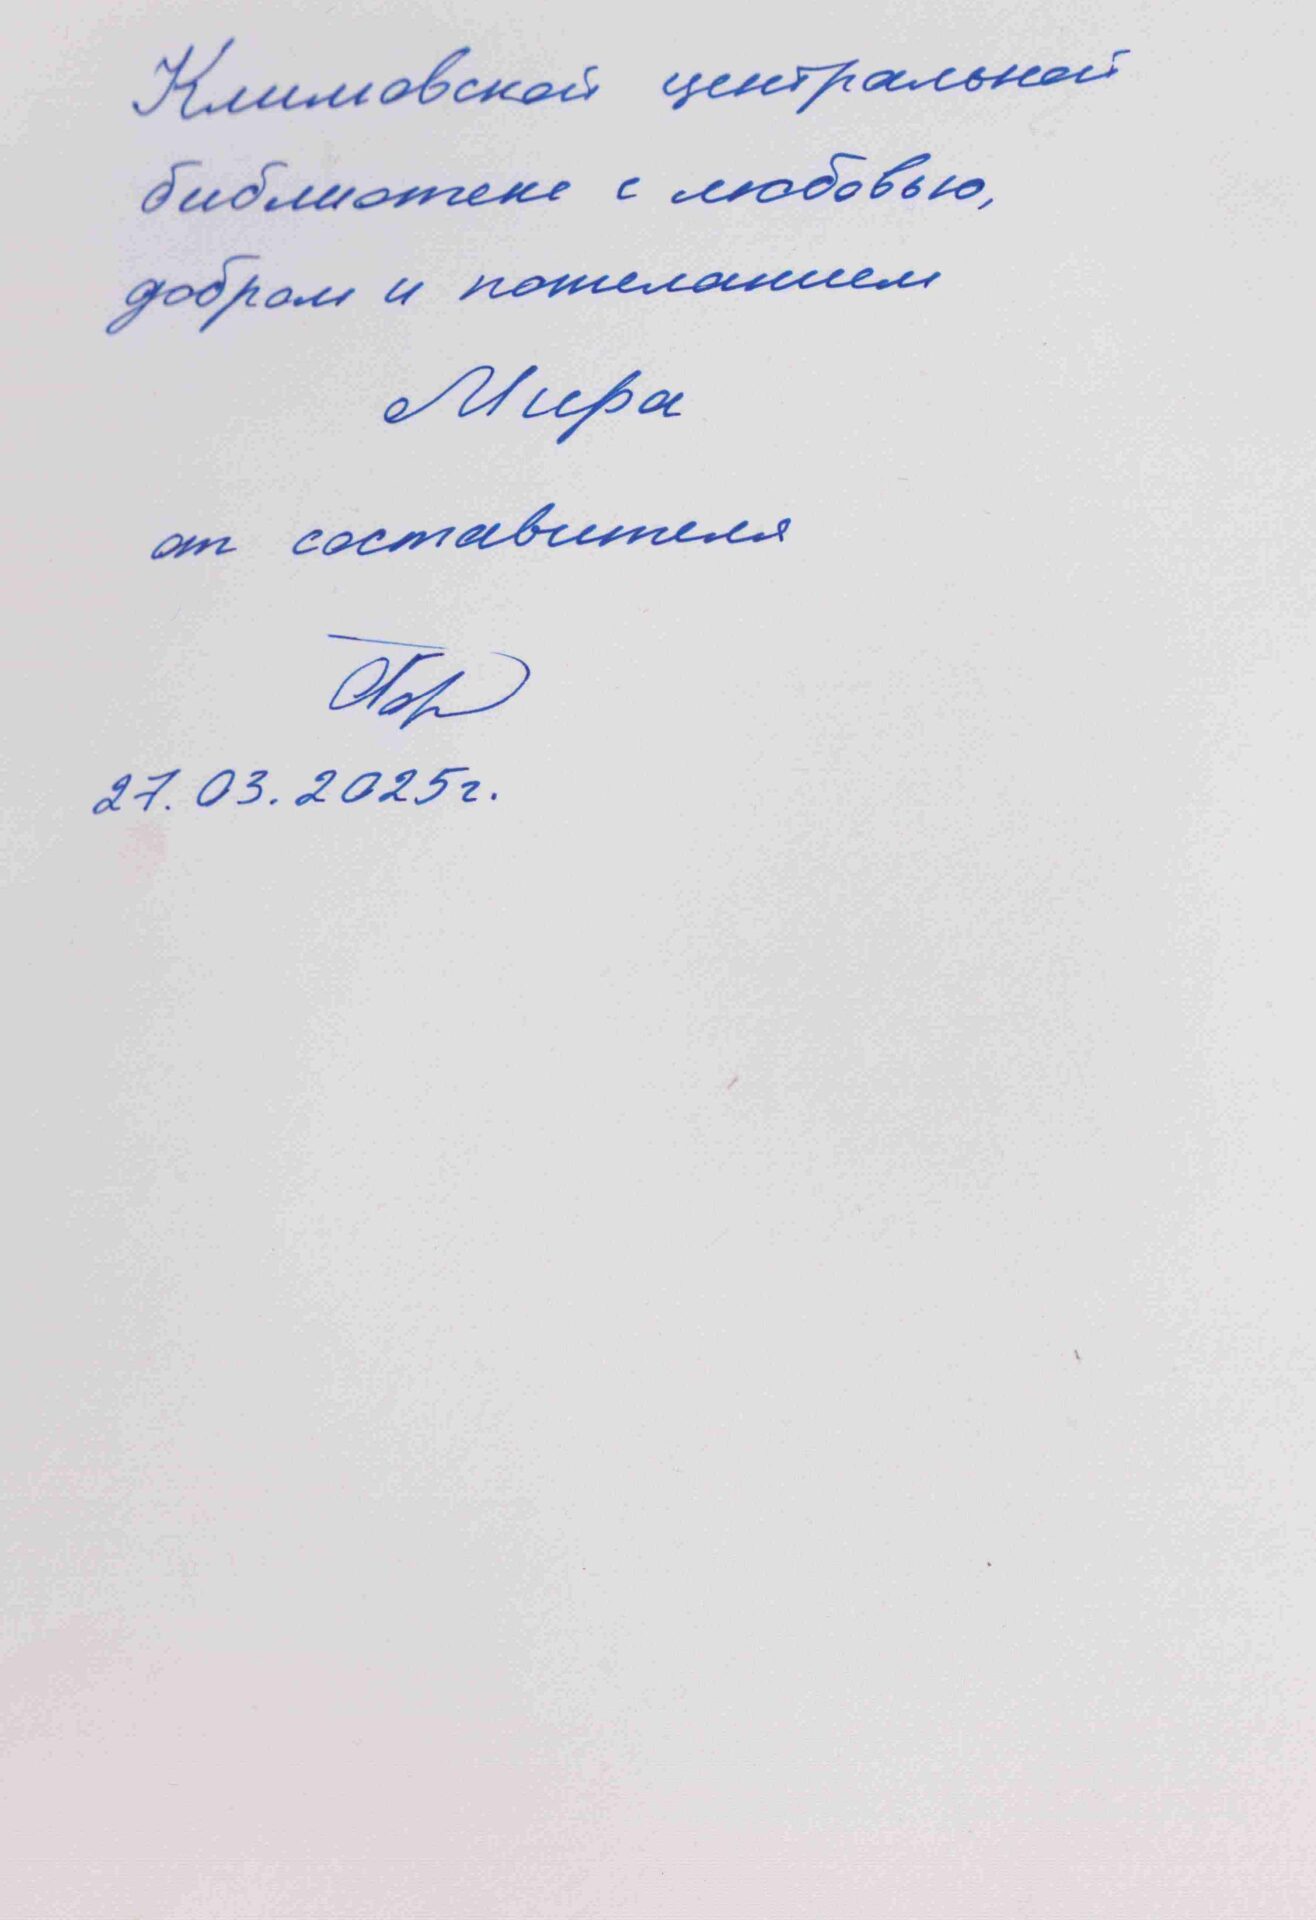 Климовской центральной
библиотеке с любовью,
добром и пожеланием
Мира
от составителя
27.03.2025г.